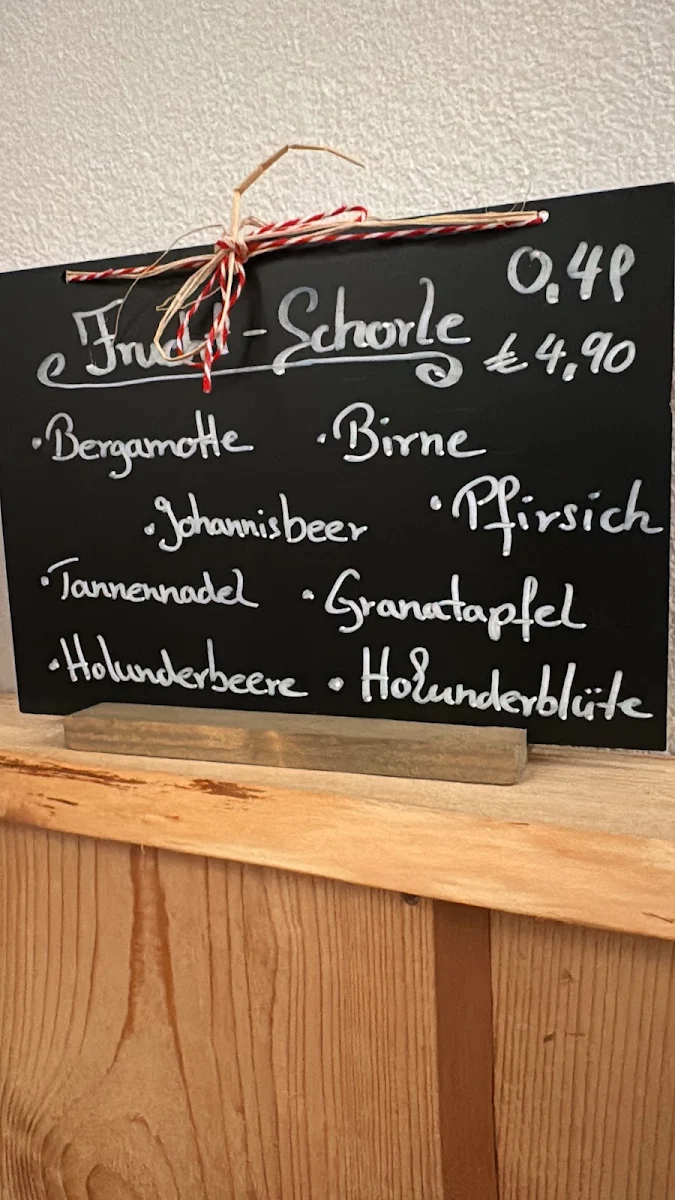 0,4l
Frucht-Schorle € 4,90
• Bergamotte • Birne
• Johannisbeer • Pfirsich
• Tannennadel • Granatapfel
• Holunderbeere • Holunderblüte